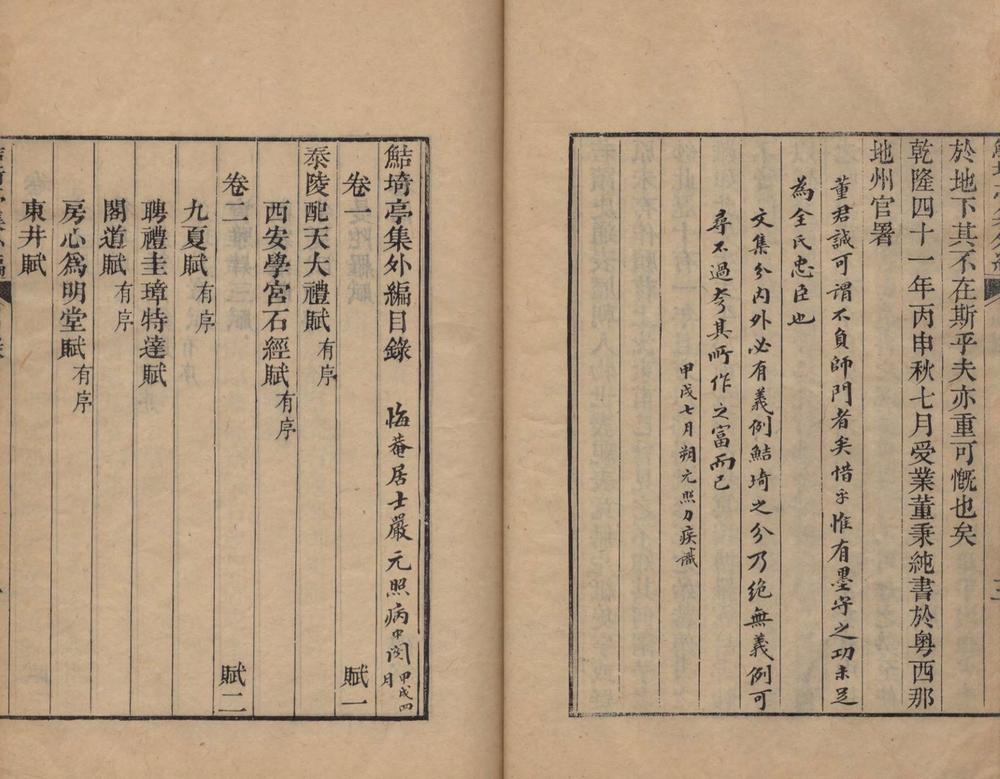 於地下其不在斯乎夫亦重可慨也矣
乾隆四十一年丙申秋七月受業董秉純書於粵西那
地州官署
董君誠可謂不負師門者矣惜乎惟有墨守之功未足
為全氏忠臣也
文集分內外必有義例鮚埼之分乃絶無義例可
尋不過夸其所作之富而已
甲戌七月朔元照力疾識
鮚埼亭集外編目錄 悔菴居士嚴元照病中閱 甲戌四月
卷一 賦一
泰陵配天大禮賦 有序
西安學宮石經賦 有序
卷二 賦二
九夏賦 有序
聘禮圭璋特達賦
閣道賦 有序
房心爲明堂賦 有序
東井賦